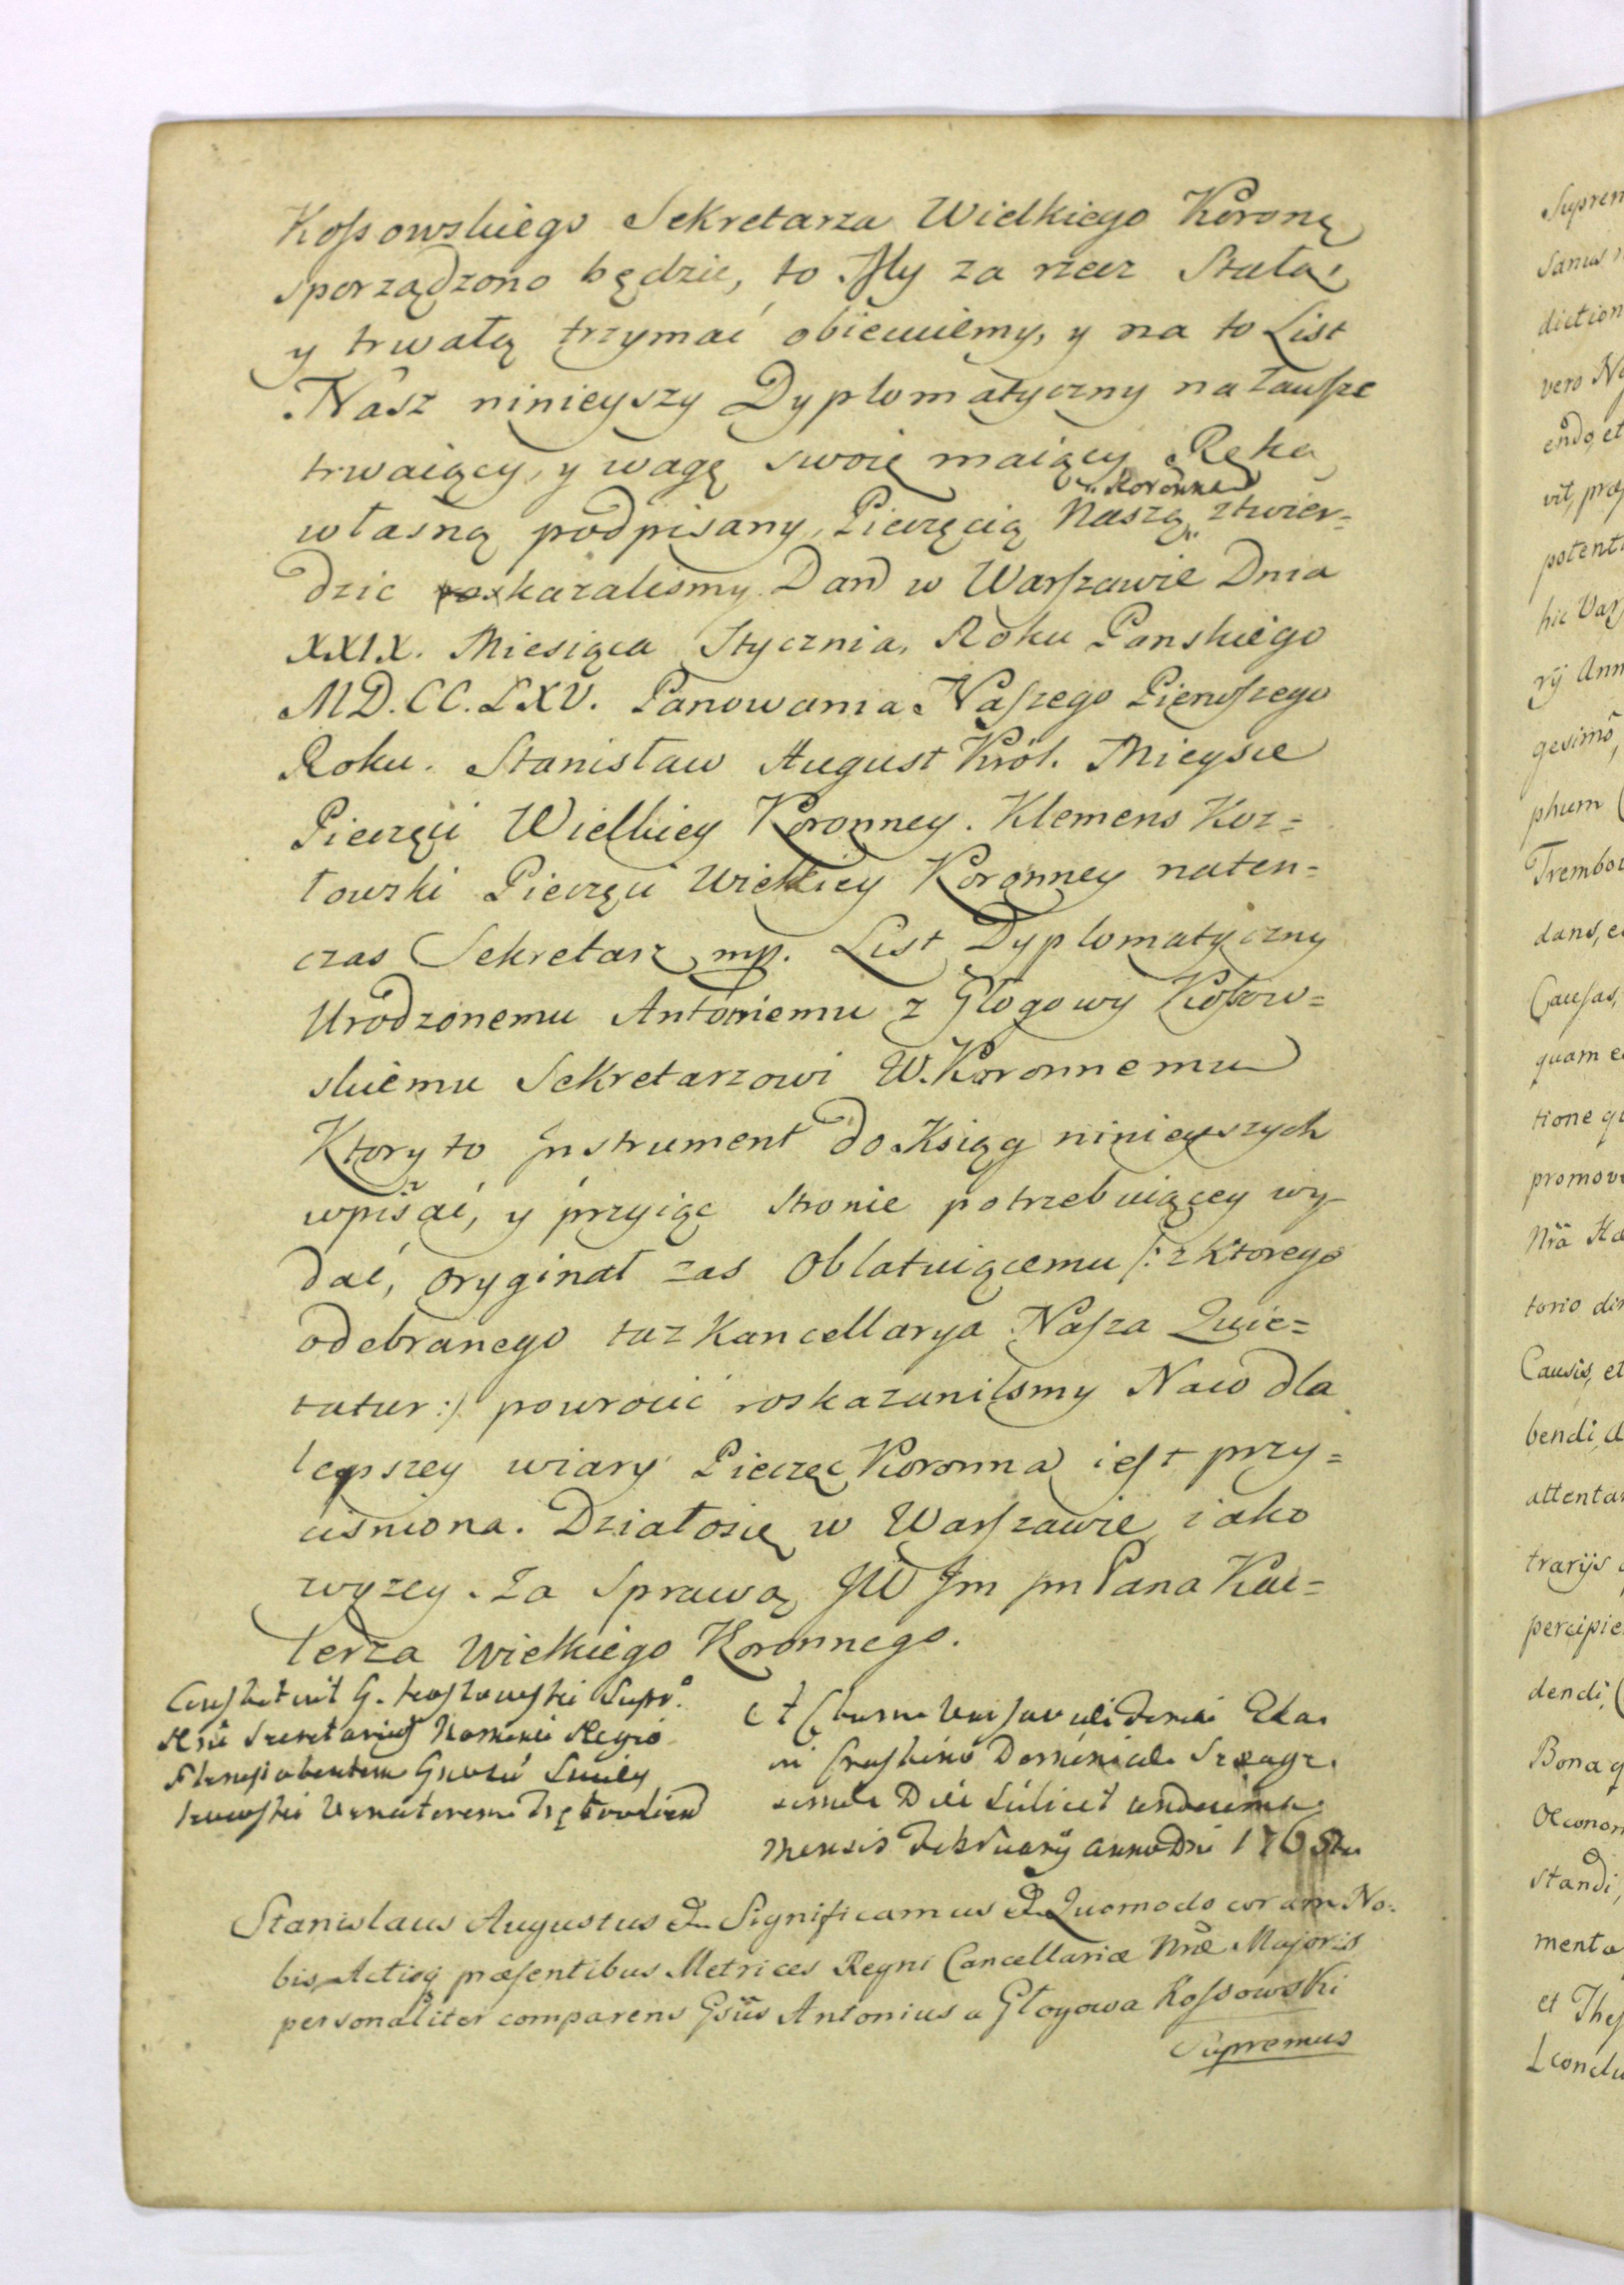 Kossowskiego Sekretarza Wielkiego Koronę
sporządzono będzie, to My za rzecz Stałą,
y trwałą trzymać obiecuiemy, y na to List
Nasz ninieyszy Dyplomatyczny na zausze
trwaiący, y wagę swoię maiący Ręką
własną podpisany, Pieczęcią Naszą Koronną ztwier=
dzic roskazalismy. Dan w Warszawie Dnia
XXIX. Miesiąca Stycznia, Roku Panskiego
MD.CC.LXV. Panowania Naszego Pierwszego
Roku. Stanisław August Król. Mieysce
Pieczęci Wielkiey Koronney. Klemens Koz=
łowski Pieczęci Wielkiey Koronney naten=
czas Sekretarz mp. List Dyplomatyczny
Urodzonemu Antoniemu z Głogowy Kossow=
skiemu Sekretarzowi W. Koronnemu
Ktory to Instrument do Ksiąg ninieyszych
wpisać, y przyiąc stronie potrzebuiącey wy-
dać, oryginał zas Oblatuiącemu /: z ktorego
odebranego taz Kancellarya Nasza Quie=
tatur :/ powrocić roskazalismy Na co dla
lepszey wiary Pieczęc Koronna iest przy=
cisniona. Działosię w Warszawie iako
wyzey. Za Sprawą JW Jm Pana Kac=
lerza Wielkiego Koronnego.
Constituit G. Kossowski Supr.
Rni Secretarius Nomine Regio
mensis February anno Dni 1765to
Stanislaus Augustus & Significamus & Quomodo coram No-
bis Actisq præsentibus Metrices Regni Cancellariæ Nræ Majoris
personaliter comparens Gsus Antonius a Głogowa Kossowski
Supremus
Suprem
diction
vero No
endo, et
potent
hic Var
rij Ann
gesimo
phum
Trembow
dans, e
Causas,
quam e
tione qu
promov
Nra Ha
torio di
Causis, et
bendi, d
attenta
trarijs
percipie
dendi,
Bona q
Oeconom
standi,
menta
et Thes